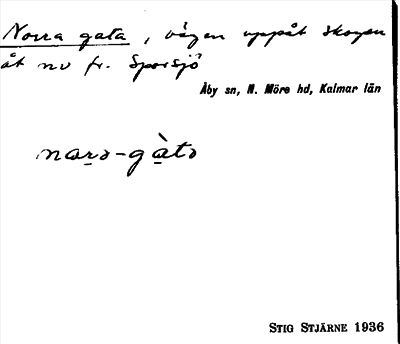 Norra gata, vägen uppåt skogen
åt nv fr. Sporsjö
Åby sn, N. Möre hd, Kalmar län
narə-gàtə
STIG STJÄRNE 1936